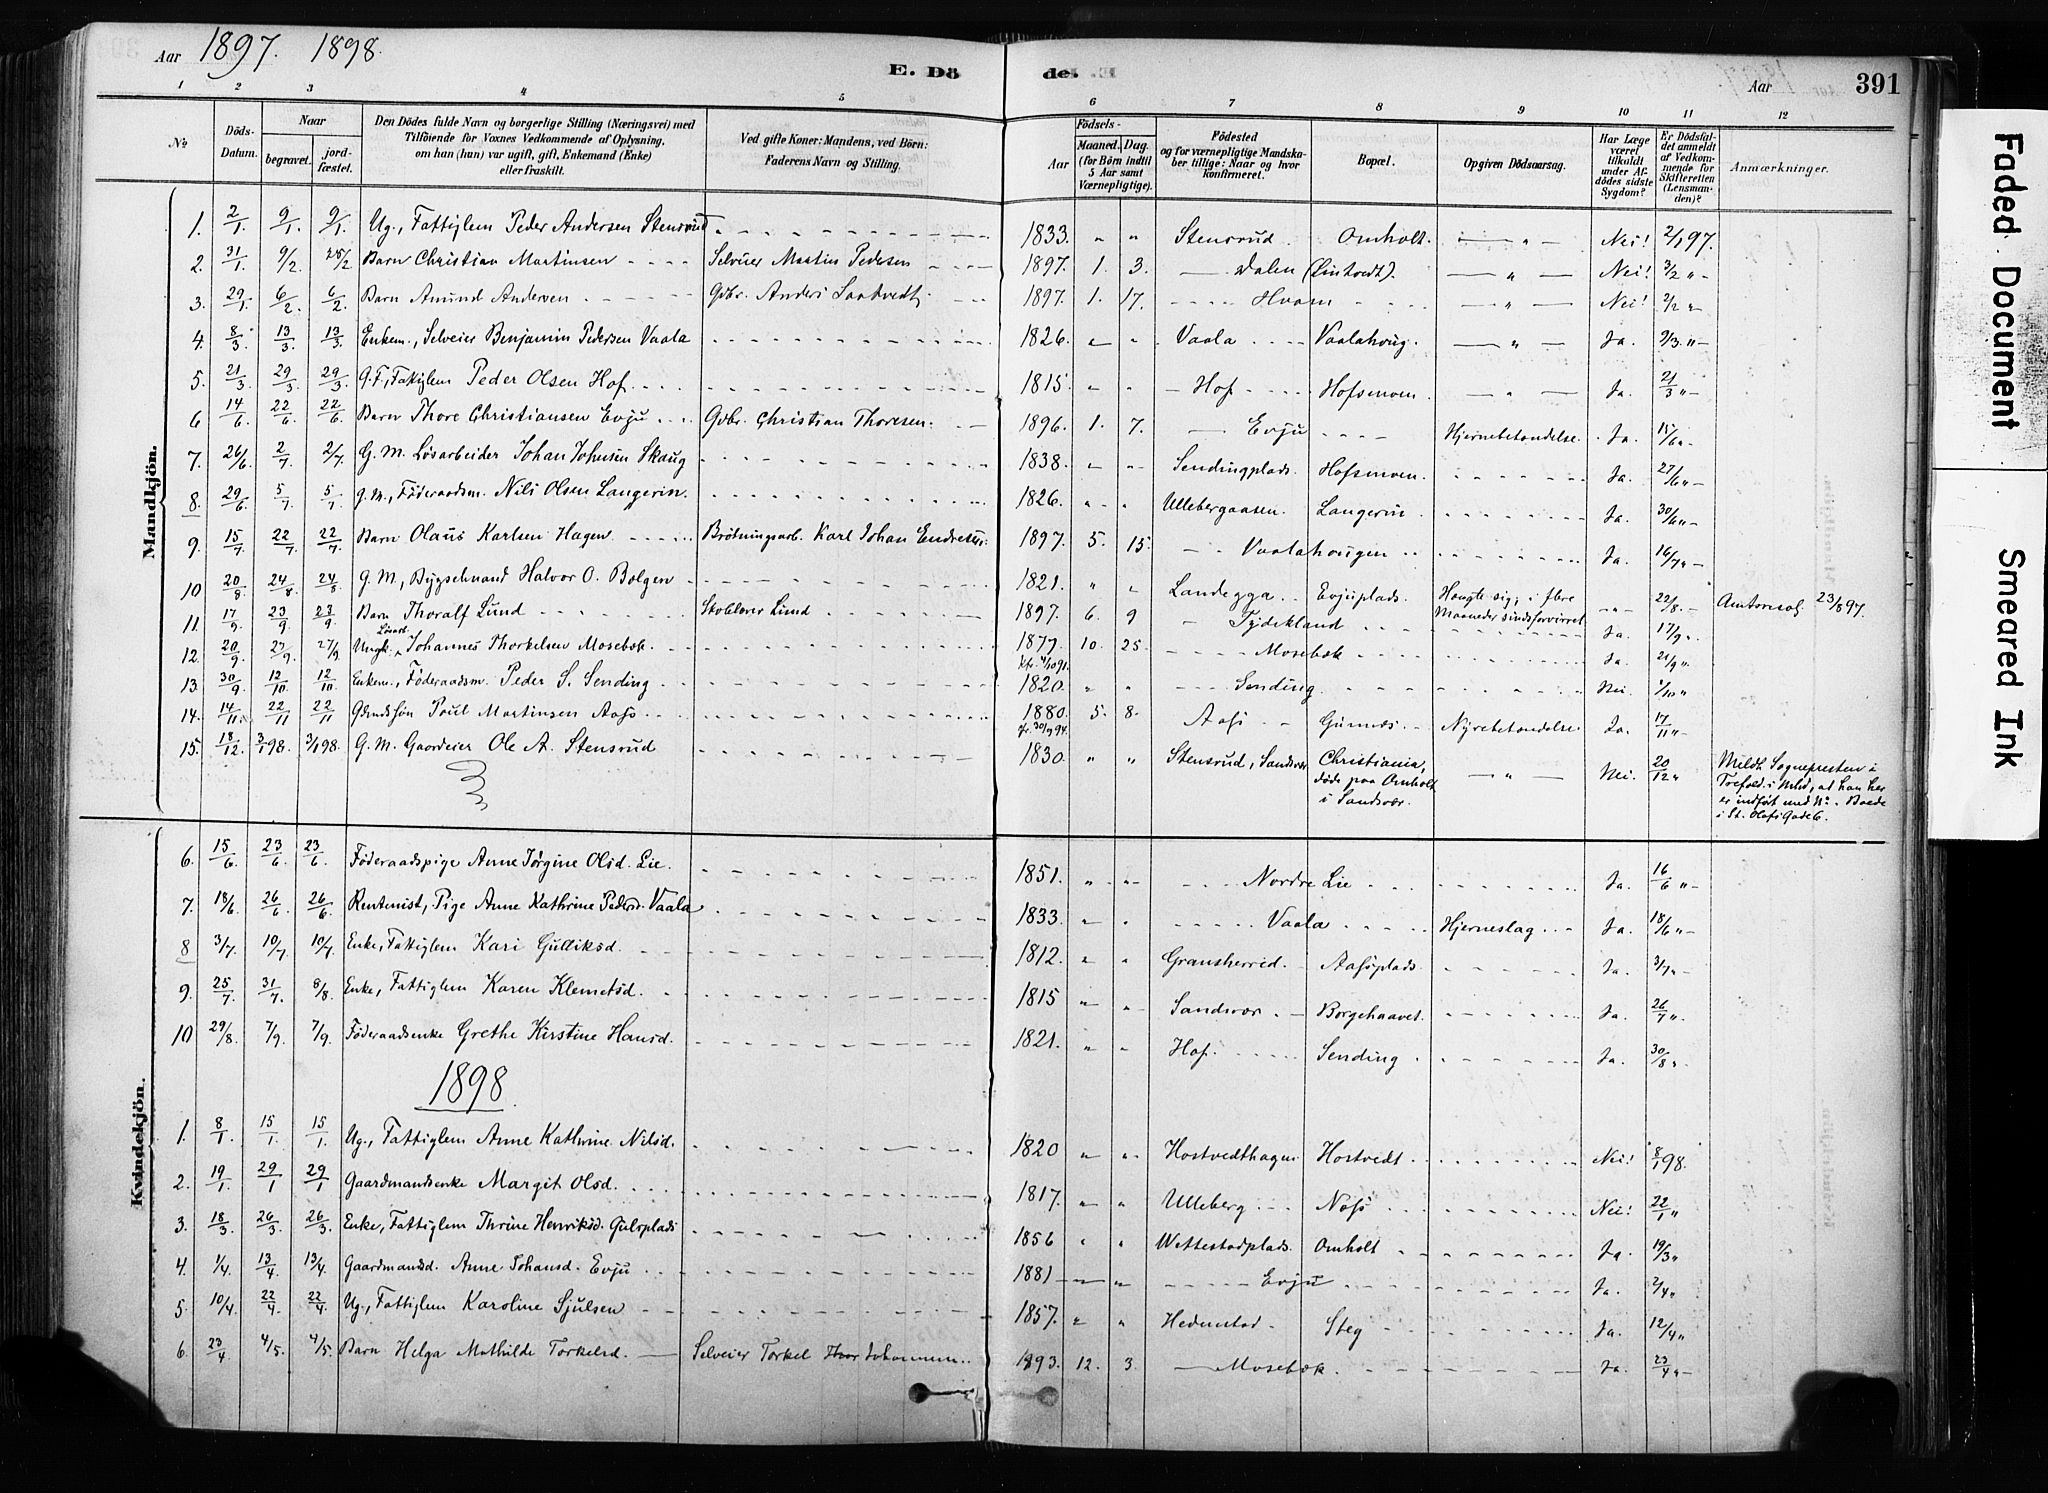 Aar 1897. 1898.
E. Dö
de.
Aar
391
1 2 3 4 5 6 7 8 9 10 11 12
No
Döds-Datum.
Naar
begravet.
jord-fæstet.
Den Dödes fulde Navn og borgerlige Stilling (Næringsvei) med
Tilföiende for Voxnes Vedkommende af Oplysning,
om han (hun) var ugift, gift, Enkemand (Enke)
eller fraskilt.
Ved gifte Koner: Mandens, ved Börn:
Faderens Navn og Stilling.
Födsels-
Aar
Maaned. Dag.
(for Börn indtil
5 Aar samt
Værnepligtige).
Födested
og for værnepligtige Mandska-
ber tillige: Naar og hvor
konfirmeret.
Bopæl.
Opgiven Dödsaarsag.
Har Læge
været
tilkaldt
under Af-
dödes sidste
Sygdom?
Er Dödsfal-
det anmeldt
af Vedkom-
mende for
Skifteretten
(Lensman-
den)?
Anmærkninger.
Mandkjön.
1. 2/1. 9/1. 9/1. Ug., Fattiglem Peder Andersen Stensrud 1833. " " Stensrud. Omholt. — " — Nei! 2/1 97.
2. 31/1. 9/2. 28/2 Barn Christian Martinsen Selveier Martin Pedersen 1897. 1. 3. Dalen (Lintvedt). — " — Nei! 3/2 "
3. 29/1 6/2. 6/2. Barn Amund Andersen Gdbr. Anders Saatvedt 1897. 1. 17. Hvam — " — Nei! 2/2 "
4. 8/3. 13/3. 13/3. Enkem., Selveier Benjamin Pedersen Vaala 1826. " " Vaala Vaalahoug. — " — Ja. 9/3. "
5. 21/3. 29/3. 29/3. G.F., Fattiglem Peder Olsen Hof. 1815. " " Hof Hofsmoen. " Ja. 21/3 "
6 14/6. 22/6. 22/6. Barn Thore Christiansen Evju Gdbr. Christian Thoresen. 1896. 1. 7. Evju Hjernebetændelse. Ja. 15/6 "
7. 26/6. 2/7. 2/7. G. M. Løsarbeider Johan Johnsen Skaug 1838. " " Sendingplads. Hofsmoen. Ja. 27/6 "
8. 29/6. 5/7. 5/7. G. M., Föderaadsm. Nils Olsen Langerin. 1826. " " Ullebergaasen. Langerin. Ja. 30/6 "
9. 15/7. 22/7. 22/7. Barn Olaus Karlsen Hagen Karl Johan 1897. 5. 15. Vaalahougen Ja. 16/7 "
10 20/8. 24/8. 24/8. G. M., Halvor O. Bolgen 1821. " " Landegga Evjuplads. Hængte sig; i flere 22/8. Amtsresol. 23/8 97.
11. 17/9. 23/9. 23/9. Barn Thoralf Lund Lund 1897. 6. 9 Maaneder sindsforvirret Ja. 17/9 "
12. 20/9. 27/9. 27/9. Ungk. Løsarb. Johannes Thorkelsen Mosebæk. 1877. 10. 25. Mosebæk Ja. 21/9 "
13. 30/9. 12/10. 12/10. Enkem., Föderaadsm. Peder S. Sending 1820. " " Sending Nei. 1/10 "
14. 14/11. 22/11 22/11 Poul Martinsen Aass 1880. 5. 8. Aass Gunnes Nyrebetændelse. Ja. 17/11 "
15. 18/12. 3/1 98. 3/1 98. G. M. Gaardeier Ole A. Stensrud 1830. " " Stensrud, Sandsvær Christiania, — " — Nei. 20/12 "
döde paa Omholt
i Sandsvær.
Meldt Sognepresten i
Trefold. i Mhd, at han her
er indfört med No. Boede
i St. Olafs Gade 6.
Kvindekjön.
6. 15/6. 23/6. 23/6 Föderaadspige Anne Jörgine Olsd. Lie. 1851. " " Nordre Lie Ja. 16/6 "
7. 18/6. 26/6. 26/6. Rentenist, Pige Anne Kathrine Pedersd. Vaala 1833. " " Vaala Hjerneslag Ja. 18/6 "
8 3/7. 10/7. 10/7. Enke, Fattiglem Kari Gulliksd. 1812. " " Gransherred. Aasplads. Ja. 3/7 "
9. 25/7. 31/7. 8/8. Enke, Fattiglem Karen Klemetsd. 1815 " " Sandsvær Borgehaavet. Ja. 26/7 "
10 29/8. 7/9. 7/9. Föderaadsenke Grethe Kirstine Hansd. 1821. " " Hof. Sending Ja. 30/8 "
1898.
1. 8/1. 15/1. 15/1. Ug., Fattiglem Anne Kathrine Nilsd. 1820 " " Hostvedthagen Hostvedt Nei! 8/1 98.
2. 19/1. 29/1 29/1 Gaardmandsenke Margit Olsd. 1817. " " Ulleberg Nei! 22/1 "
3. 18/3. 26/3. 26/3. Enke, Fattiglem Thrine Henriksd. 1856 " " Wettestadplads. Omholt Ja. 19/3 "
4. 1/4. 13/4. 13/4. Gaardmandsd. Anne Johansd. Evju 1881 " " Evju Ja. 2/4 "
5. 10/4. 22/4. 22/4. Ug., Fattiglem Karoline Sjulsen 1857. " " Hedenstad Steg Ja. 12/4 "
6. 23/4. 4/5. 4/5. Barn Helga Mathilde Torkelsd. Selveier Torkel 1893. 12. 3. Mosebæk. Ja. 23/4 "
Faded Document
Smeared Ink